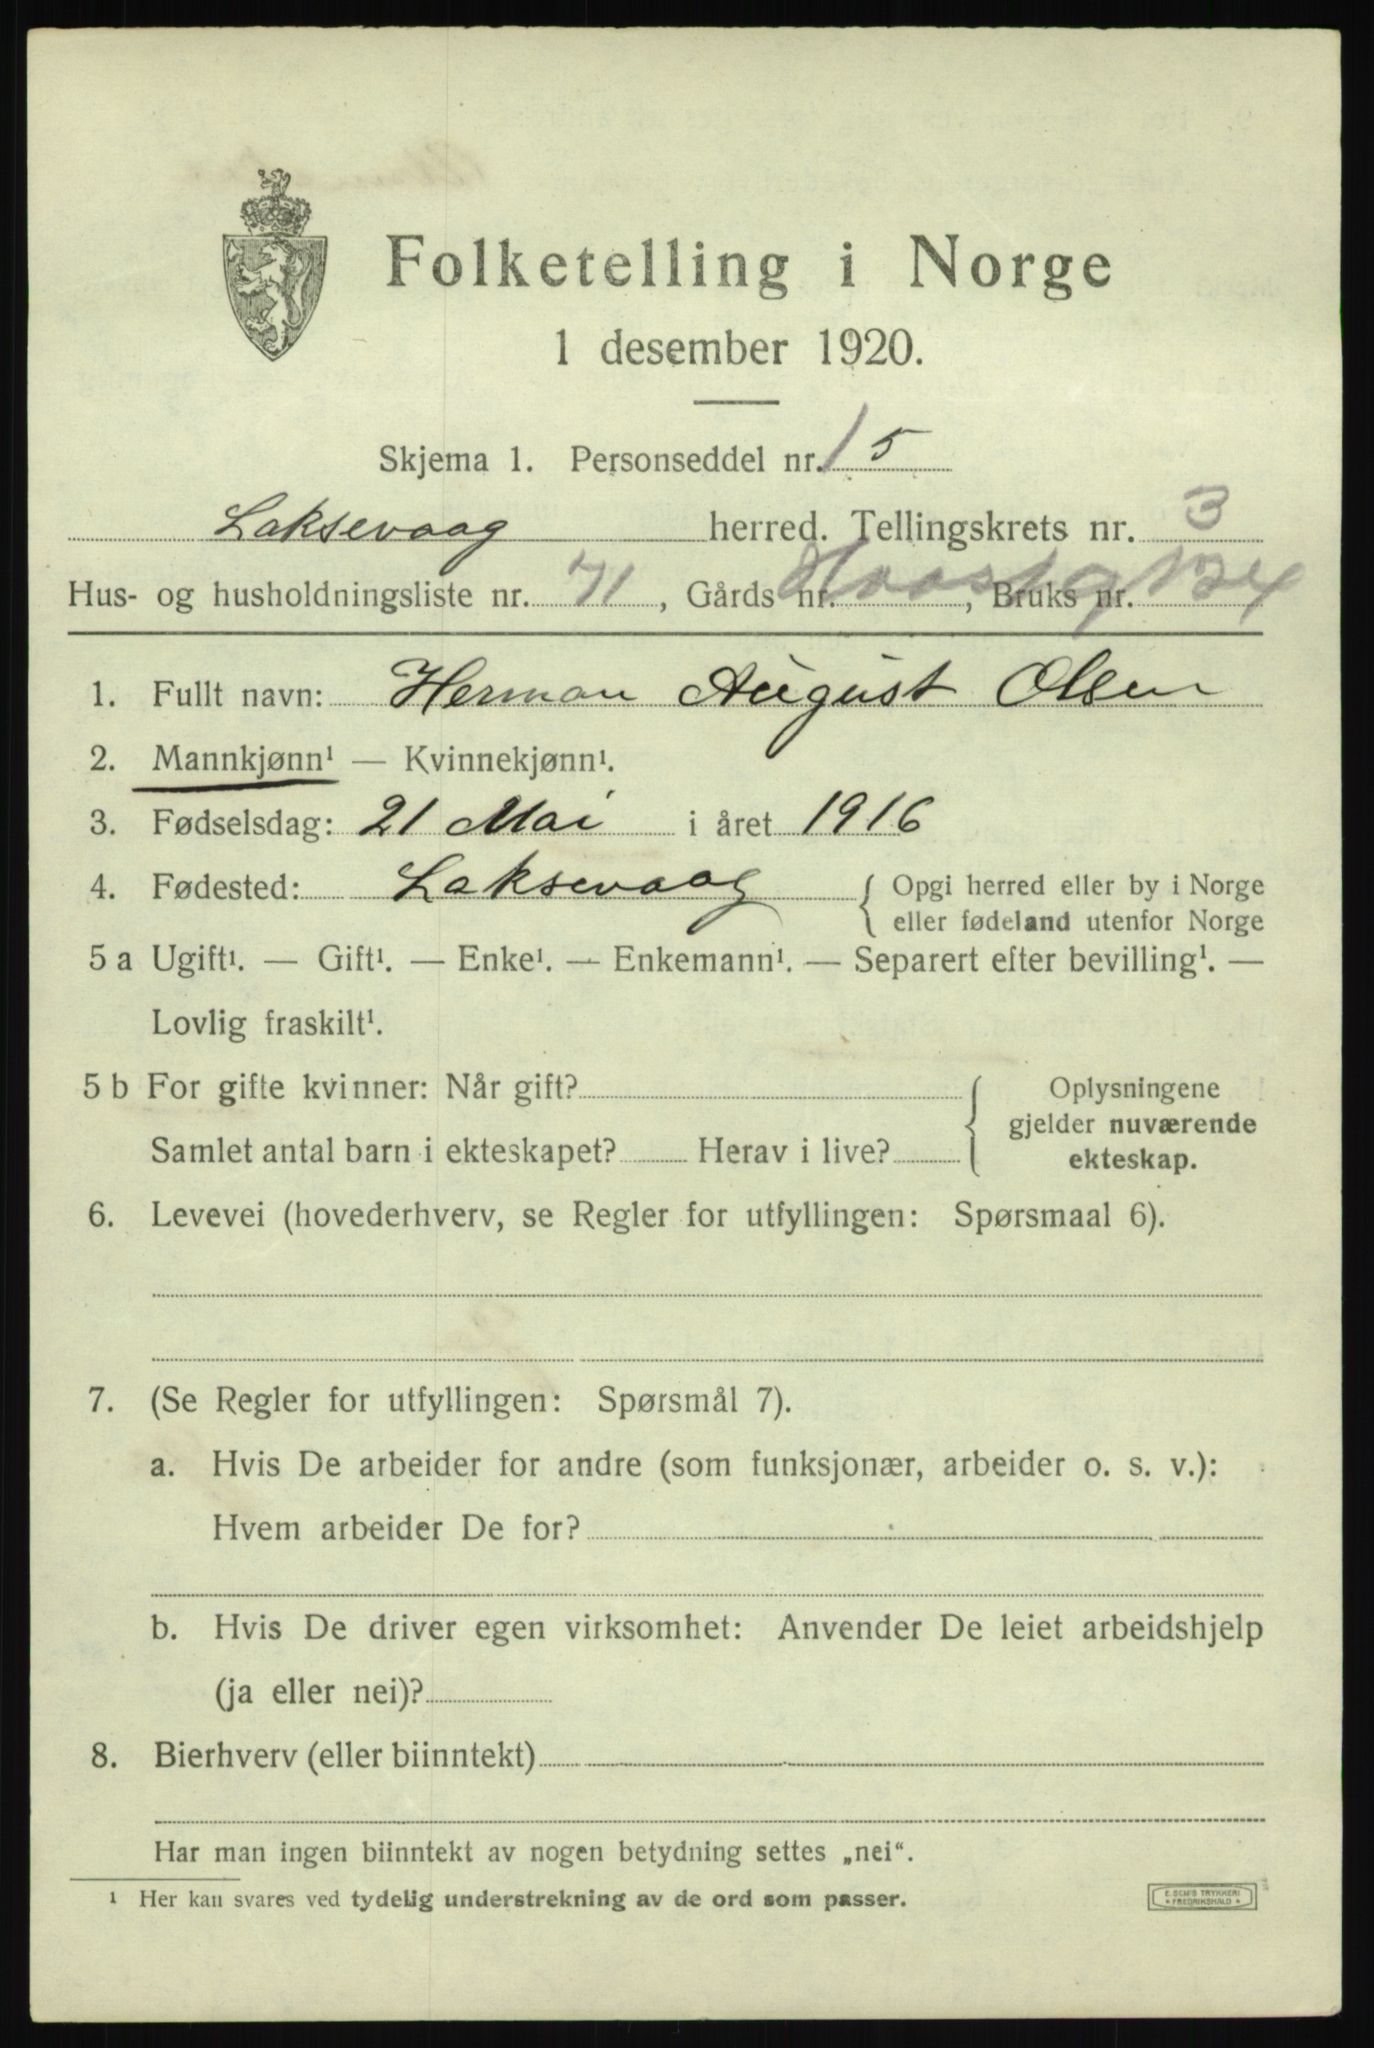 Folketelling i Norge
1 desember 1920.
Skjema 1. Personseddel nr. 15
Laksevaag herred. Tellingskrets nr. 3
Hus- og husholdningsliste nr. 71, Gårds nr. , Bruks nr.
1. Fullt navn: Herman August Olsen
2. Mannkjønn¹ — Kvinnekjønn¹.
3. Fødselsdag: 21 Mai i året 1916
4. Fødested: Laksevaag { Opgi herred eller by i Norge
eller fødeland utenfor Norge
5 a Ugift¹. — Gift¹. — Enke¹. — Enkemann¹. — Separert efter bevilling¹. —
Lovlig fraskilt¹.
5 b For gifte kvinner: Når gift? { Oplysningene
gjelder nuværende
Samlet antal barn i ekteskapet? Herav i live? ekteskap.
6. Levevei (hovederhverv, se Regler for utfyllingen: Spørsmaal 6).
7. (Se Regler for utfyllingen: Spørsmål 7).
a. Hvis De arbeider for andre (som funksjonær, arbeider o. s. v.):
Hvem arbeider De for?
b. Hvis De driver egen virksomhet: Anvender De leiet arbeidshjelp
(ja eller nei)?
8. Bierhverv (eller biinntekt)
Har man ingen biinntekt av nogen betydning settes „nei“.
¹ Her kan svares ved tydelig understrekning av de ord som passer.
E. SEM'S TRYKKERI
* FREDRIKSHALD *